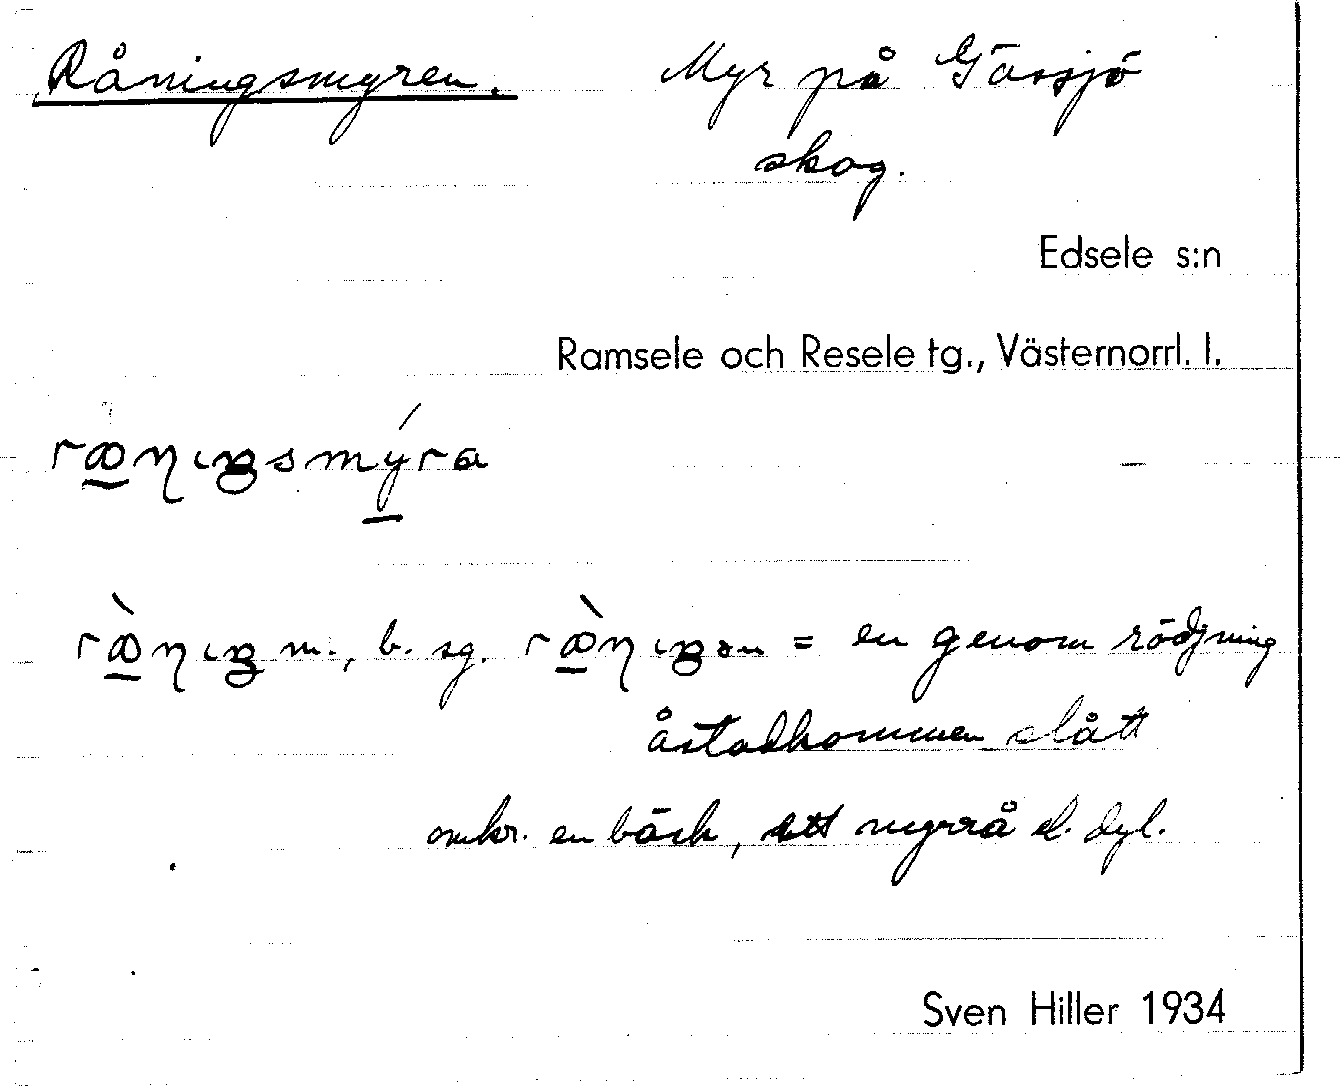 Råningsmyren. Myr på Gåssjö
skog.
Edsele s:n
Ramsele och Resele tg., Västernorrl. l.
m., b. sg. = en genom rödjning
åstadkommen slått
omkr. en bäck, ett myrrå el. dyl.
Sven Hiller 1934